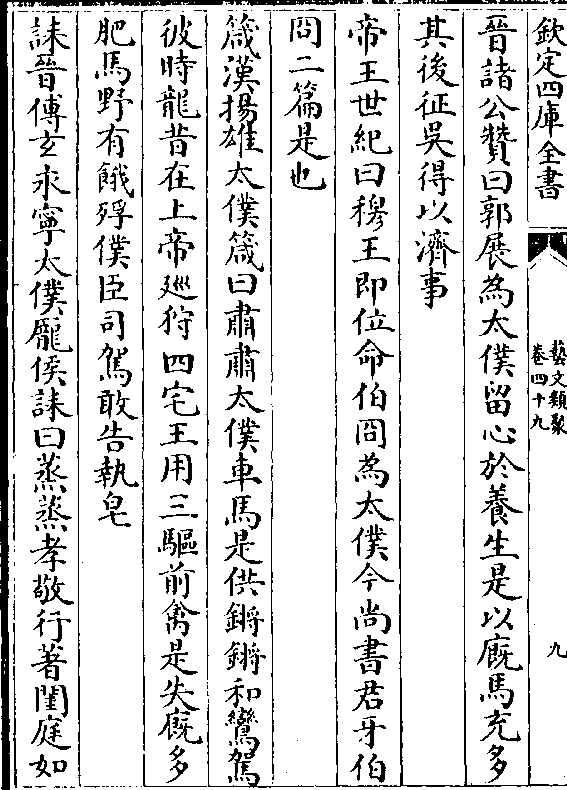 欽定四庫全書
藝文類聚
卷四十九
九
晉諸公贊曰郭展為太僕留心於養生是以廐馬充多
其後征吳得以濟事
帝王世紀曰穆王即位命伯冏為太僕今尚書君牙伯
冏二篇是也
箴漢揚雄太僕箴曰肅肅太僕車馬是供鏘鏘和鸞駕
彼時龍昔在上帝廵狩四宅王用三驅前禽是失廐多
肥馬野有餓殍僕臣司駕敢告執皂
誄晉傅玄永寧太僕龐侯誄曰蒸蒸孝敬行著閨庭如